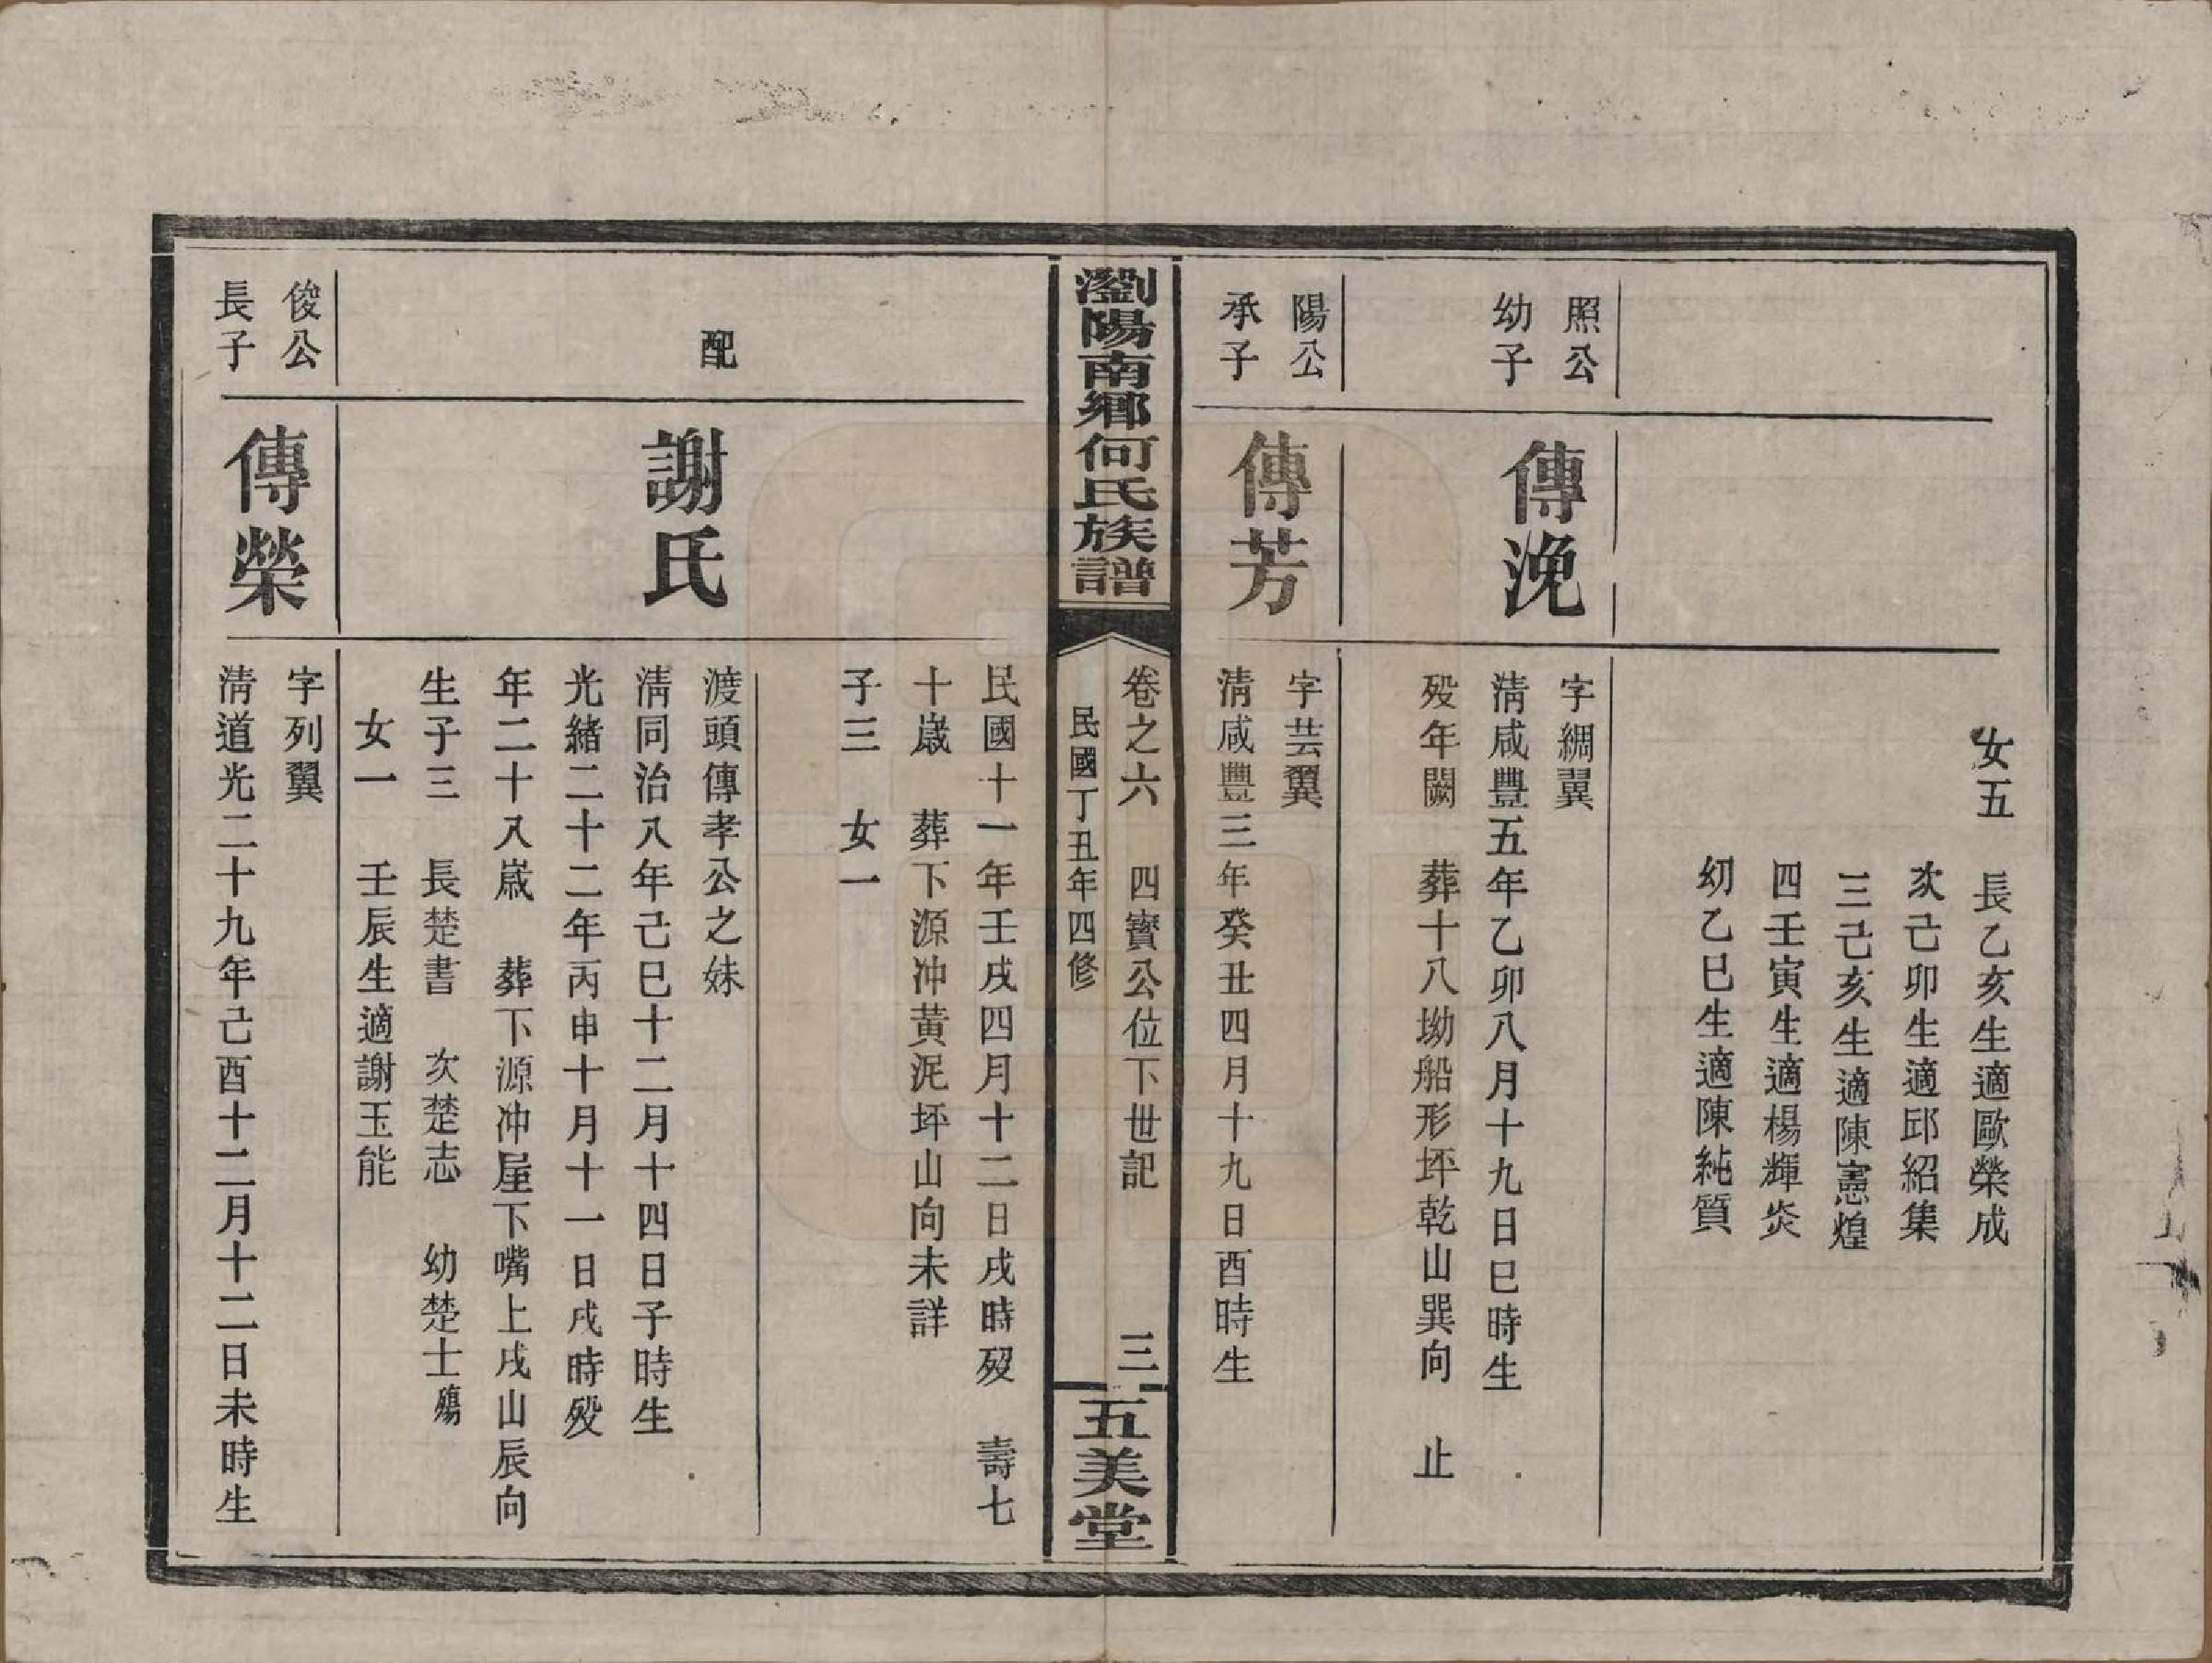 女五　長乙亥生適歐榮成
次己卯生適邱紹集
三己亥生適陳憲煌
四壬寅生適楊輝炎
幼乙巳生適陳純質
照公
幼子
傳浼
字綢翼
清咸豐五年乙卯八月十九日巳時生
歿年闕　葬十八坳船形坪乾山巽向　止
陽公
承子
傳芳
字芸翼
清咸豐三年癸丑四月十九日酉時生
瀏陽南鄉何氏族譜
卷之六　四寶公位下世記　三
民國丁丑年四修
五美堂
民國十一年壬戌四月十二日戌時歿　壽七
十歲　葬下源冲黃泥坪山向未詳
子三　女一
配
謝氏
渡頭傳孝公之妹
清同治八年己巳十二月十四日子時生
光緒二十二年丙申十月十一日戌時歿
年二十八歲　葬下源冲屋下嘴上戌山辰向
生子三　長楚書　次楚志　幼楚士殤
女一　壬辰生適謝玉能
俊公
長子
傳榮
字列翼
清道光二十九年己酉十二月十二日未時生